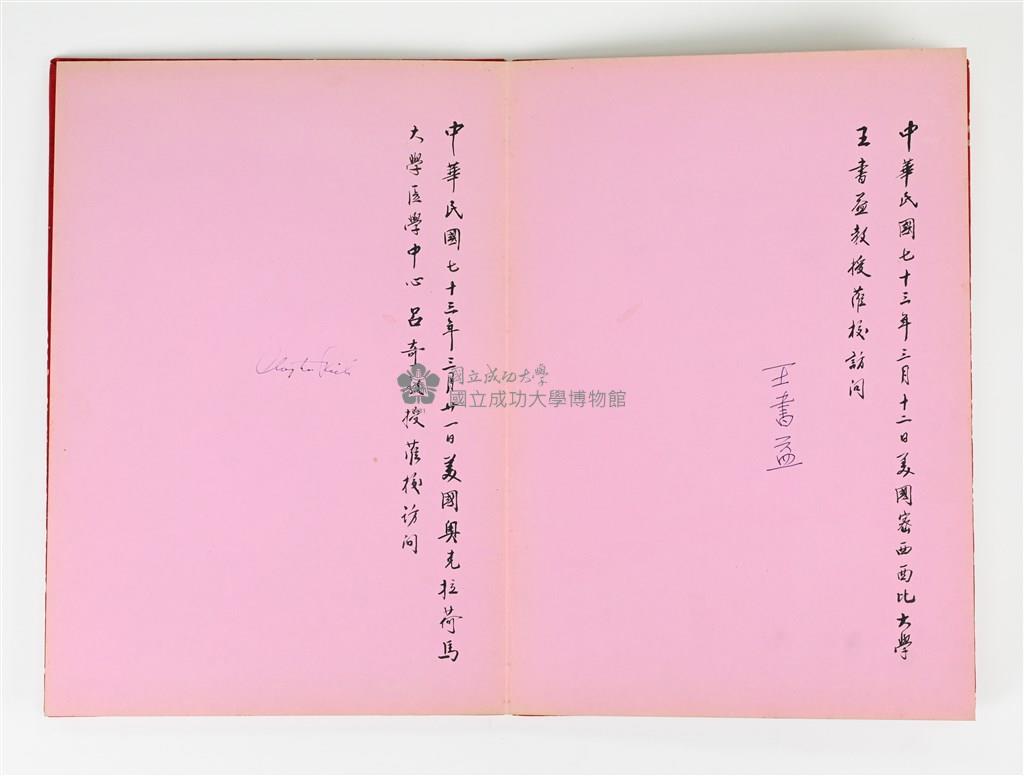 中華民國七十三年三月十二日美國密西西比大學
王書益教授蒞校訪问
王書益
中華民國七十三年三月廿一日美國奧克拉荷馬
大學医學中心呂奇教授蒞校访问
國立成功大學
國立成功大學博物館